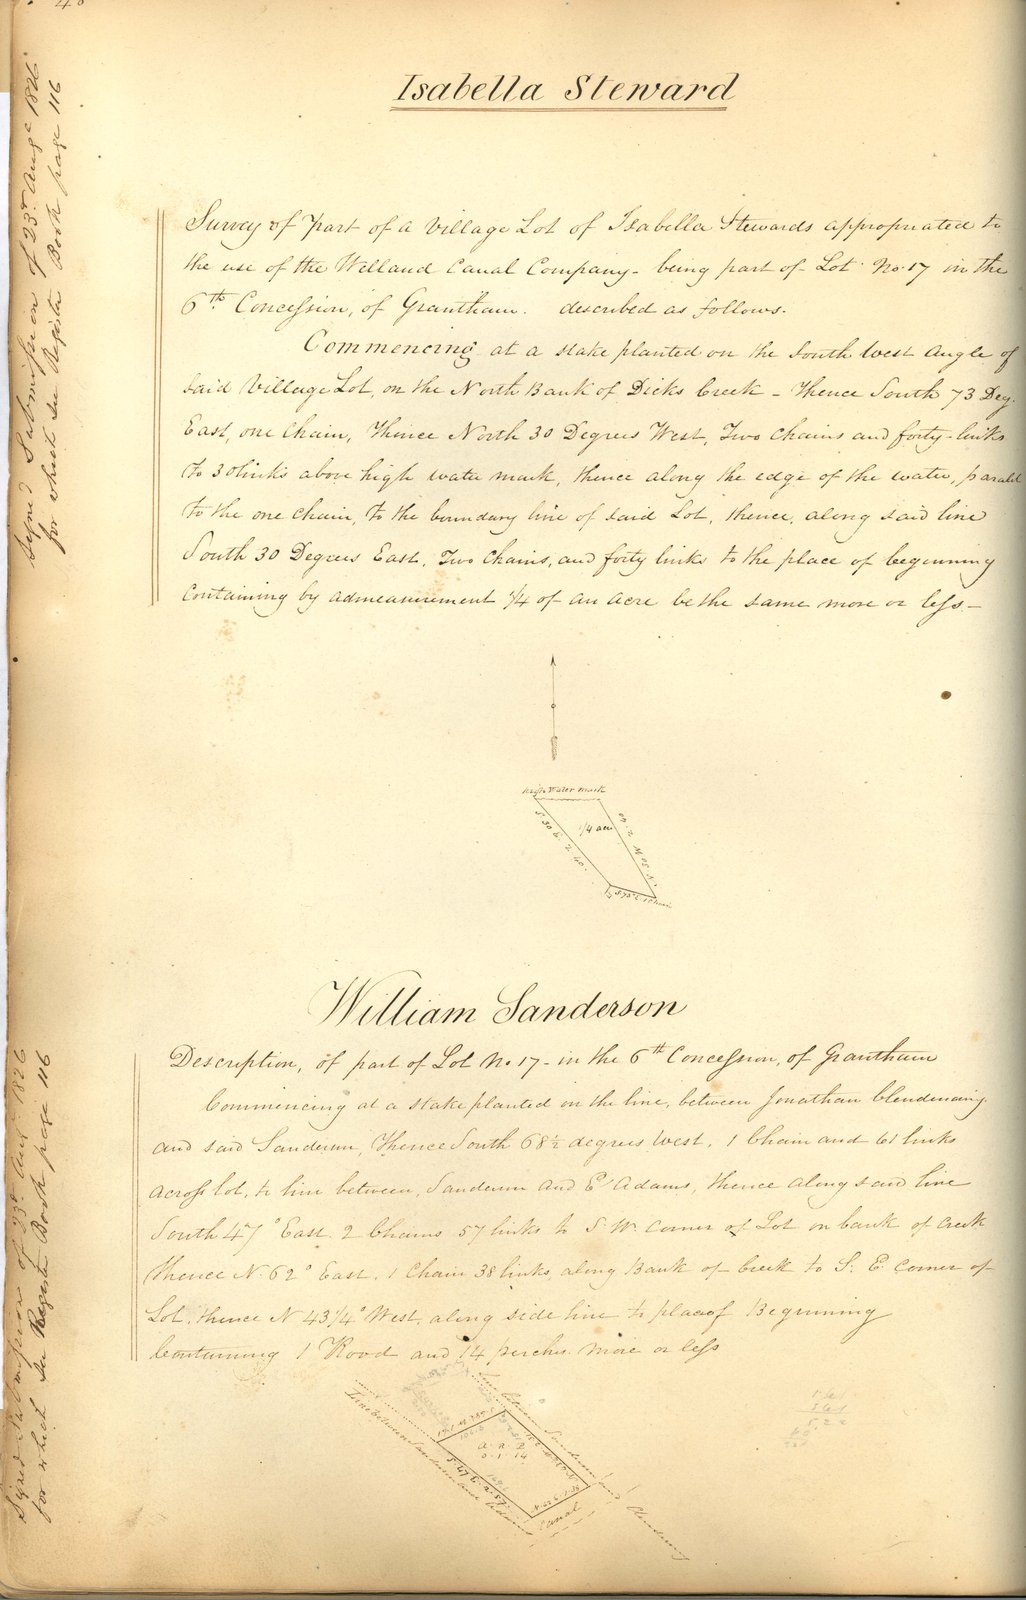 Isabella Steward
Survey of part of a Village Lot of Isabella Stewards appropriated to
the use of the Welland Canal Company - being part of Lot No. 17 in the
6th. Concession, of Grantham. described as follows.
Commencing at a stake planted on the South West Angle of
said Village Lot, on the North Bank of Dicks Creek - Thence South 73 Deg.
East, one Chain, Thence North 30 Degrees West, Two Chains and forty-links
to 30 links above high water mark, thence along the edge of the water, paralel
to the one Chain, to the boundary line of said Lot, thence, along said line
South 30 Degrees East, Two Chains, and forty links to the place of beginning
Containing by admeasurement 1/4 of an Acre be the same more or less -
Signed Submission of 23rd. Augt. 1826
for which see Register Book page 116
high Water mark
1/4 acre
S. 30 E. 2. 40.
N. 30 W 2. 40
William Sanderson
Description, of part of Lot No. 17 - in the 6th Concession, of Grantham
Commencing at a stake planted on the line, between Jonathan Clendening
and said Sanderson, Thence South 68 1/2 degrees West, 1 Chain and 61 links
across lot, to line between, Sanderson and E. Adams, thence along said line
South 47° East. 2 Chains 57 links to S. W. Corner of Lot on bank of creek
Thence N. 62° East, 1 Chain 38 links, along Bank of Creek to S. E. Corner of
Lot, thence N 43 1/4° West, along side line to place of Beginning
Containing 1 Rood and 14 perches more or less
Signed Submission of 23rd. Augt 1826
for which See Register Book page 116
Line between Sanderson and Clendening
Line between Sanderson and Adams
A. R. P.
0. 1. 14.
S. 47 E. 2. 57
Canal